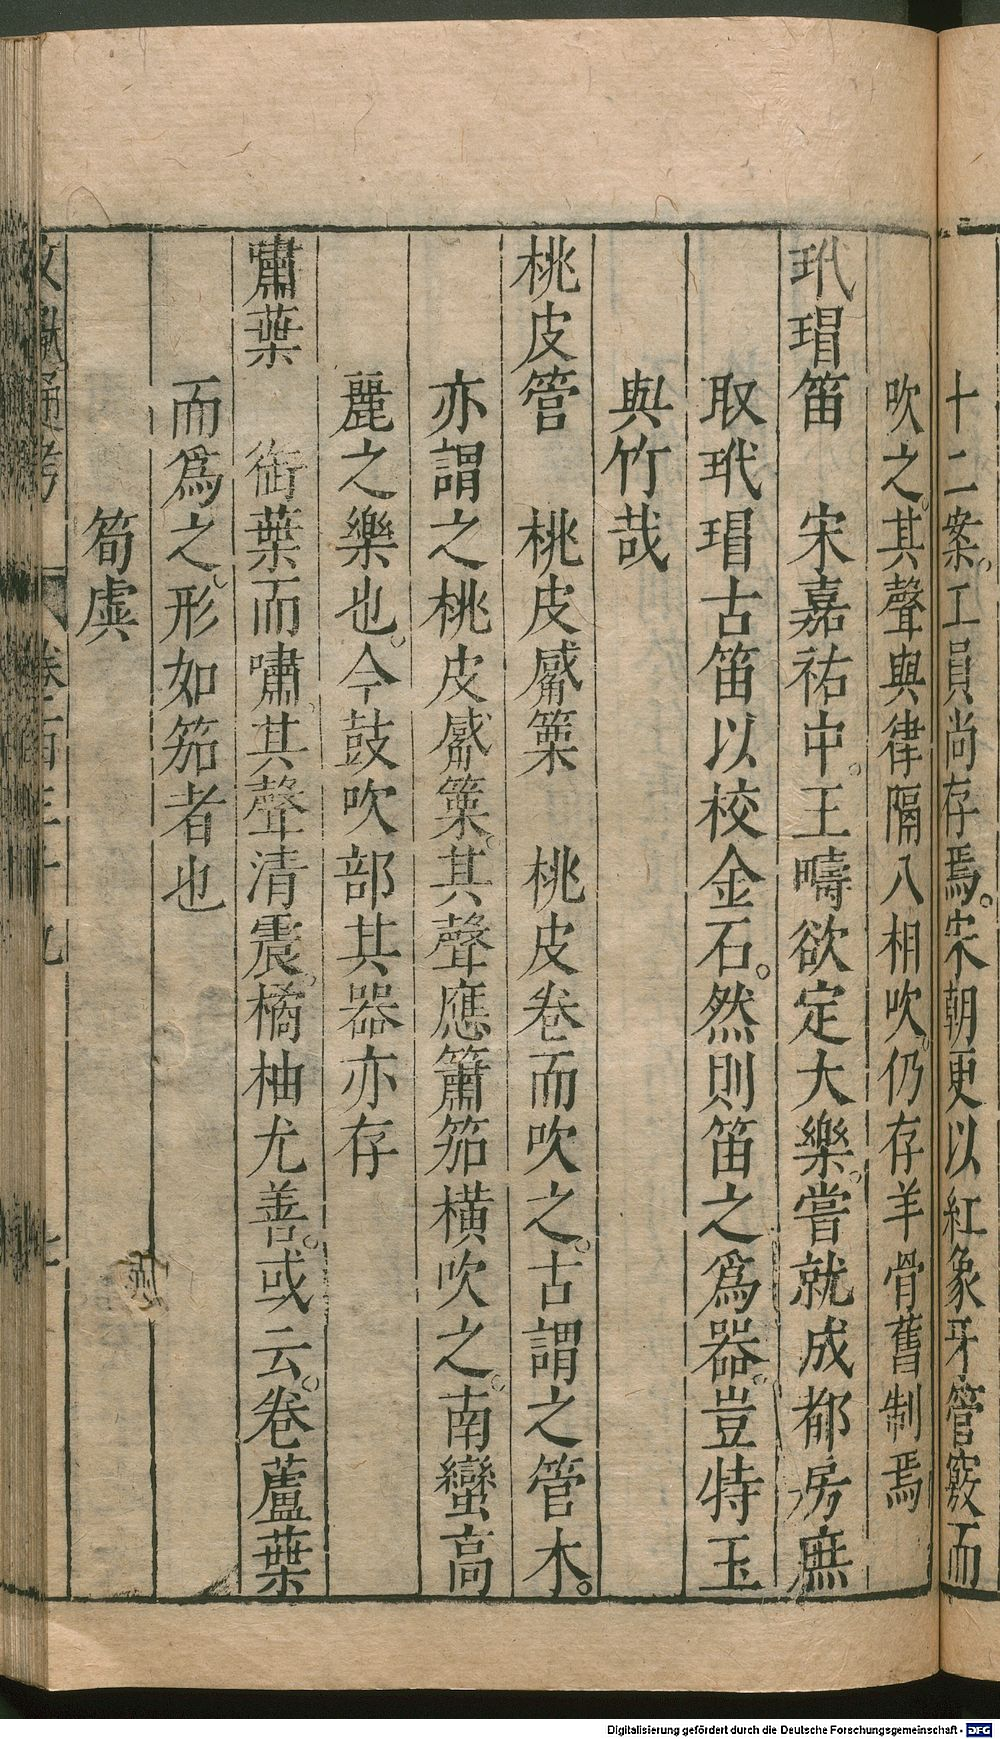 十二案。工員尚存焉。宋朝更以紅象牙管竅而
吹之。其聲與律隔八相吹。仍存羊骨舊制焉
玳瑁笛　宋嘉祐中。王疇欲定大樂。嘗就成都房庶
取玳瑁古笛以校金石。然則笛之爲器。豈特玉
與竹哉
桃皮管　桃皮觱篥　桃皮卷而吹之。古謂之管木。
亦謂之桃皮觱篥。其聲應簫笳橫吹之。南蠻高
麗之樂也。今鼓吹部其器亦存
嘯葉　銜葉而嘯。其聲清震。橘柚尤善。或云。卷蘆葉
而爲之。形如笳者也
筍虡
文獻通考　卷一百三十九
Digitalisierung gefördert durch die Deutsche Forschungsgemeinschaft - DFG